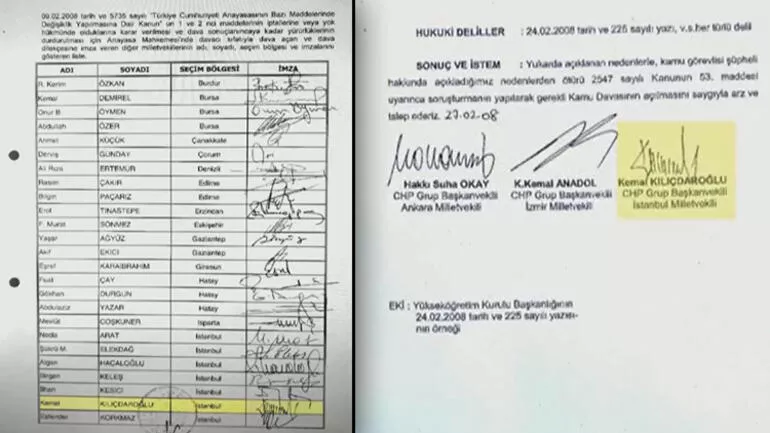 09.02.2008 tarih ve 5735 sayılı "Türkiye Cumhuriyeti Anayasasının Bazı Maddelerinde
Değişiklik Yapılmasına Dair Kanun" un 1 ve 2 nci maddelerinin iptallerine veya yok
hükmünde olduklarına karar verilmesi ve dava sonuçlanıncaya kadar yürürlüklerinin
durdurulması için Anayasa Mahkemesi'nde davacı sıfatıyla dava açan ve dava
dilekçesine imza veren diğer milletvekillerinin adı, soyadı, seçim bölgesi ve imzalarını
gösteren liste.
ADI SOYADI SEÇİM BÖLGESİ İMZA
R. Kerim ÖZKAN Burdur
Kemal DEMİREL Bursa
Onur B. ÖYMEN Bursa
Abdullah ÖZER Bursa
Ahmet KÜÇÜK Çanakkale
Derviş GÜNDAY Çorum
Ali Rıza ERTEMÜR Denizli
Rasim ÇAKIR Edirne
Bilgin PAÇARIZ Edirne
Erol TINASTEPE Erzincan
F. Murat SÖNMEZ Eskişehir
Yaşar AĞYÜZ Gaziantep
Akif EKİCİ Gaziantep
Eşref KARAİBRAHİM Giresun
Fuat ÇAY Hatay
Gökhan DURGUN Hatay
Abdulaziz YAZAR Hatay
Mevlüt COŞKUNER Isparta
Necla ARAT İstanbul
Şükrü M. ELEKDAĞ İstanbul
Algan HACALOĞLU İstanbul
Birgen KELEŞ İstanbul
İlhan KESİCİ İstanbul
Kemal KILIÇDAROĞLU İstanbul
Esfender KORKMAZ İstanbul
HUKUKİ DELİLLER : 24.02.2008 tarih ve 225 sayılı yazı, v.s.her türlü delil
SONUÇ VE İSTEM : Yukarda açıklanan nedenlerle, kamu görevlisi şüpheli
hakkında açıkladığımız nedenlerden ötürü 2547 sayılı Kanunun 53. maddesi
uyarınca soruşturmanın yapılarak gerekli Kamu Davasının açılmasını saygıyla arz ve
talep ederiz. 27.02.08
Hakkı Suha OKAY K.Kemal ANADOL Kemal KILIÇDAROĞLU
CHP Grup Başkanvekili CHP Grup Başkanvekili CHP Grup Başkanvekili
Ankara Milletvekili İzmir Milletvekili İstanbul Milletvekili
EKİ : Yükseköğretim Kurulu Başkanlığının
24.02.2008 tarih ve 225 sayılı yazısı-
nın örneği